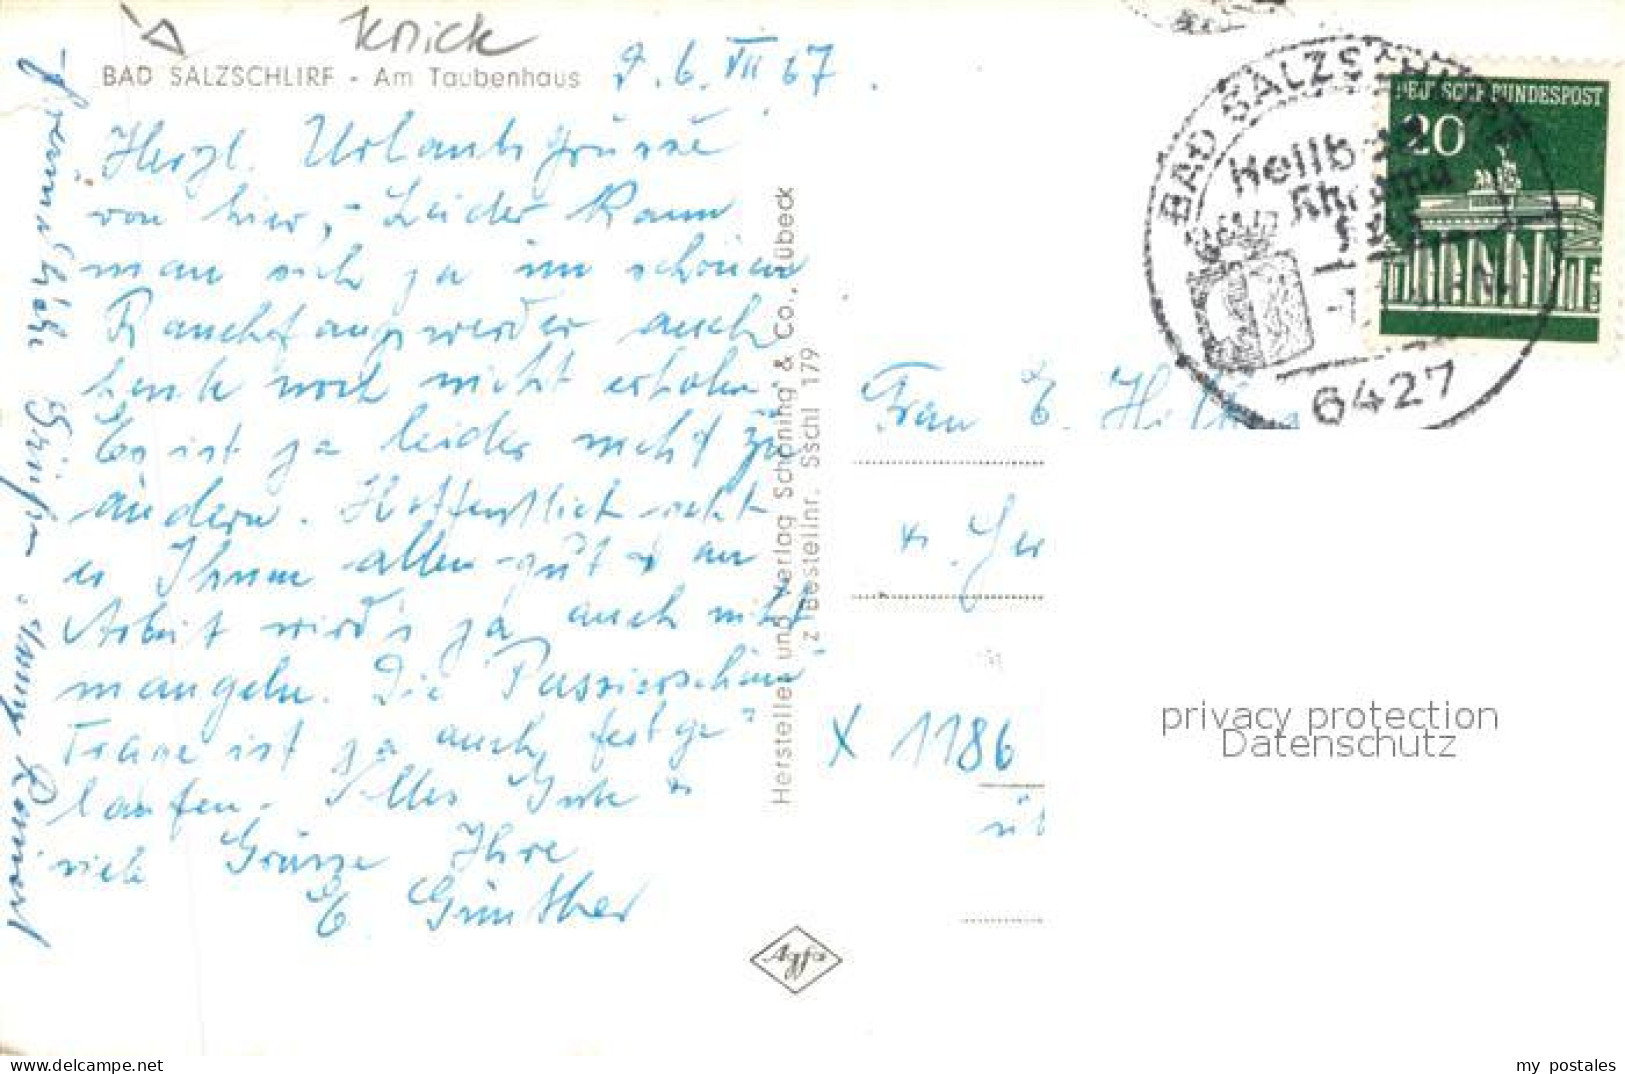 Knick
BAD SALZSCHLIRF - Am Taubenhaus
d. 6. VII 67.
Herzl. Urlaubsgrüsse
von hier, - Leider kann
man sich ja im schönen
auch
heute noch nicht erholen
Es ist ja leider nicht zu
ändern. Hoffentlich geht
es Ihnen allen gut & an
Arbeit wird's ja auch nicht
mangeln. Die Passierschein"
Frage ist ja auch festge"
laufen. Alles Gute &
viele Grüsse Ihre
E. Günther
Grüße
Hersteller und Verlag Schöning & Co., Lübeck
Bestellnr. Sschl 179
Agfa
BAD SALZSCH
Heilb
6427
DEUTSCHE BUNDESPOST
20
Frau E.
X 1186
privacy protection
Datenschutz
delcampe.net
my_postales